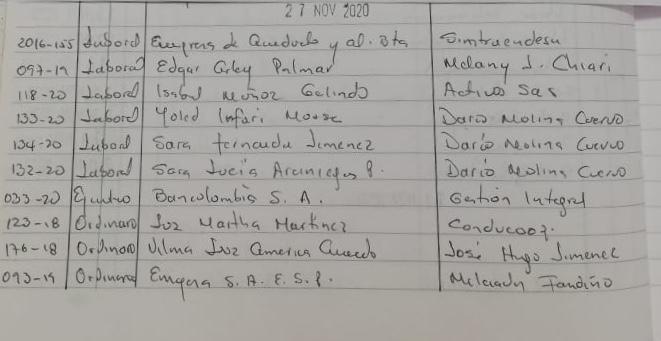 27 NOV 2020
2016-155 Laboral Empresa de Acueducto y al. Bta Sintraendesu
097-19 Laboral Edgar Arley Palmar Melany J. Chiari
118-20 Laboral Isabel Muñoz Galindo Activos SAS
133-20 Laboral Infari Moose Darío Molina Cuervo
134-20 Laboral Sara Fernanda Jimenez Darío Molina Cuervo
132-20 Laboral Sara Lucía P. Darío Molina Cuervo
033-20 Bancolombia S. A. Gestión Integral
123-18 Ordinario Luz Martha Martinez
176-18 Ordinario Vilma Luz America José Hugo Jimenez
093-19 Ordinario S. A. E. S. P. Fandiño